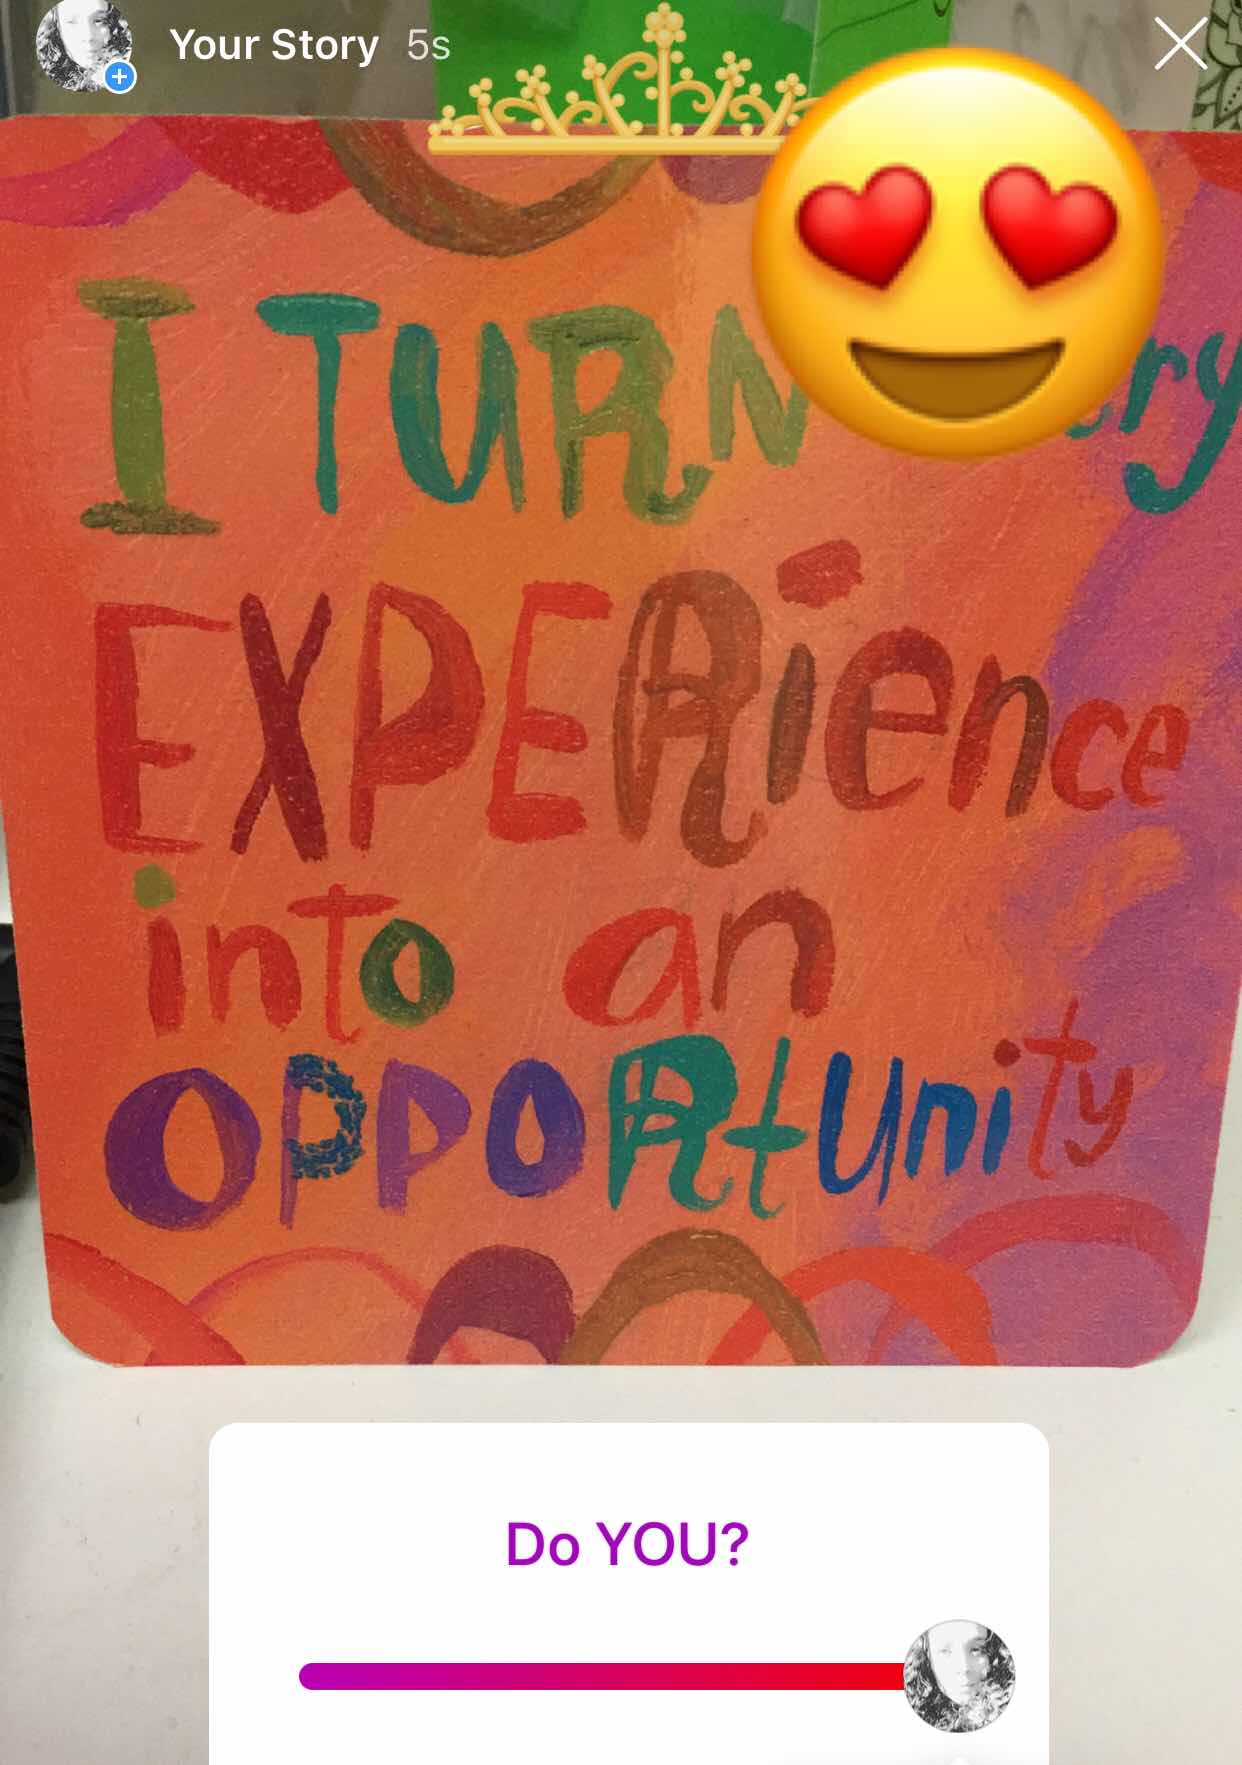 Your Story 5s
I TURN
EXPERience
into an
OPPORtUnity
Do YOU?